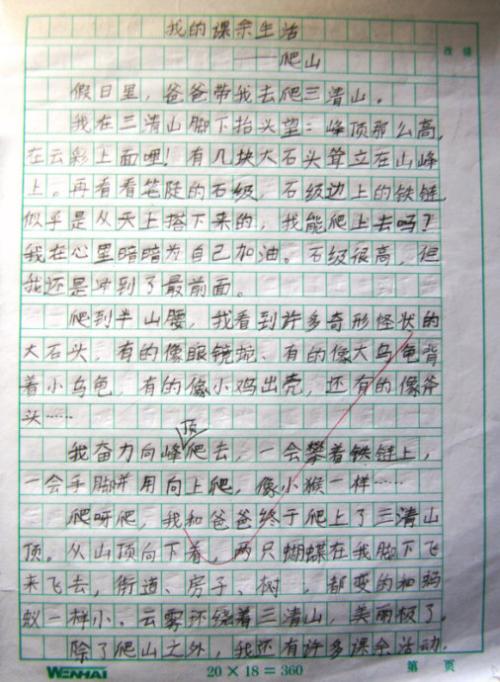 我的课余生活
——爬山
假日里，爸爸带我去爬三清山。
我在三清山脚下抬头望：峰顶那么高，
在云彩上面哩！有几块大石头耸立在山峰
上。再看看笔陡的石级，石级边上的铁链，
似乎是从天上搭下来的，我能爬上去吗？
我在心里暗暗为自己加油。石级很高，但
我还是冲到了最前面。
爬到半山腰，我看到许多奇形怪状的
大石头，有的像眼镜蛇、有的像大乌龟背
着小乌龟，有的像小鸡出壳，还有的像斧
头……
我奋力向峰顶爬去，一会攀着铁链上，
一会手脚并用向上爬，像小猴一样……
爬呀爬，我和爸爸终于爬上了三清山
顶。从山顶向下看，两只蝴蝶在我脚下飞
来飞去，街道、房子、树，都变的和蚂
蚁一样小。云雾环绕着三清山，美丽极了。
除了爬山之外，我还有许多课余活动。
WENHAI 20×18=360 第 页